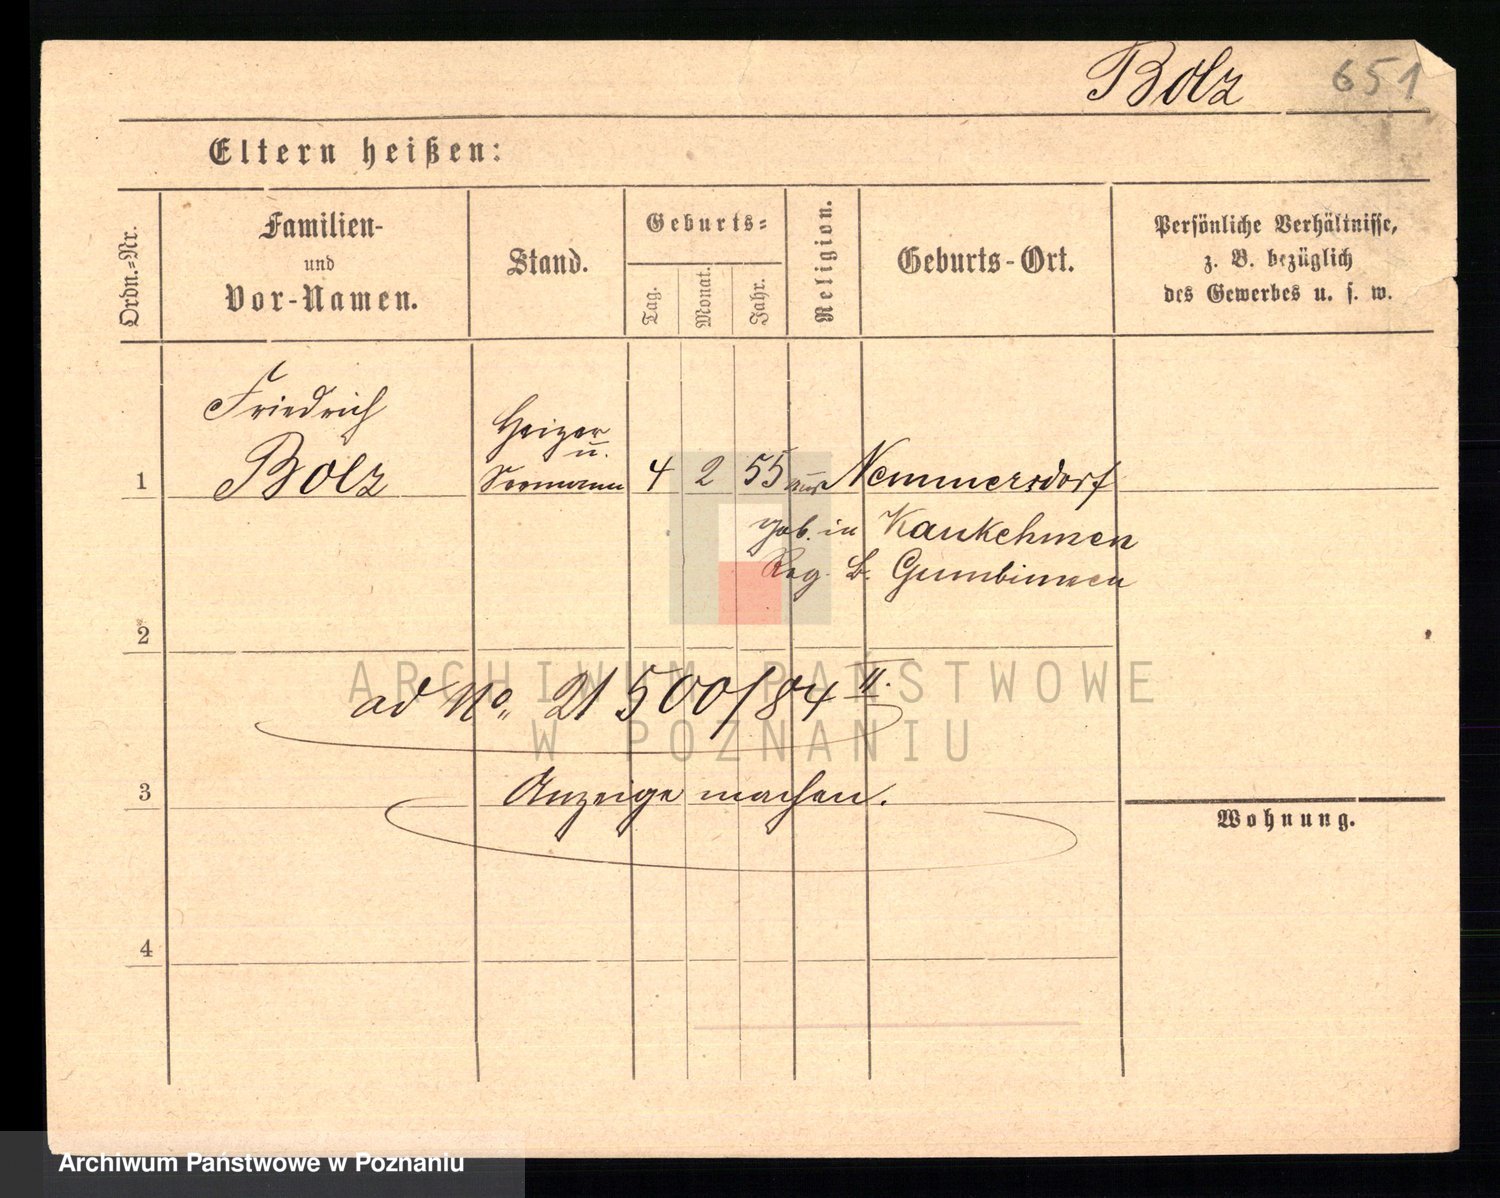 Bolz 651
Eltern heißen:
Ordn.-Nr.
Familien-
und
Vor-Namen.
Stand.
Geburts-
Tag.
Monat.
Jahr.
Religion.
Geburts-Ort.
Persönliche Verhältnisse,
z. B. bezüglich
des Gewerbes u. s. w.
Friedrich
Heizer
u.
1 Bolz Seemann 4 2 55 aus Nemmersdorf
geb. in Kaukehmen
Reg. B. Gumbinnen
2
ad No. 21500/84 II.
3 Anzeige machen.
Wohnung.
4
ARCHIWUM PAŃSTWOWE
W POZNANIU
Archiwum Państwowe w Poznaniu